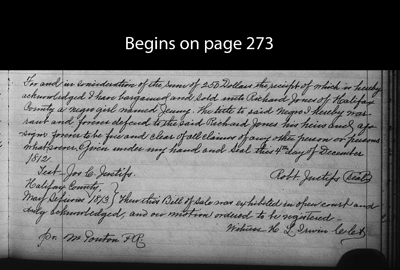 Begins on page 273
For and in consideration of the sum of 250 Dollars the receipt of which is hereby
acknowledged I have bargained and sold unto Richard Jones of Halifax
County a negro girl named Jenny. The title to said Negro I hereby war-
rant and forever defend to the said Richard Jones his heirs and as-
signs forever to be free and clear of all claims of any other person or persons
whatsoever. Given under my hand and seal this 4th day of December
1812
Test Jos. C. Justiss. Robt Justiss (seal)
Halifax County,
May Sessions 1813 } Then this Bill of Sale was exhibited in open court and
duly acknowledged, and on motion ordered to be registered.
Witness L Irwin
pr. P.R.